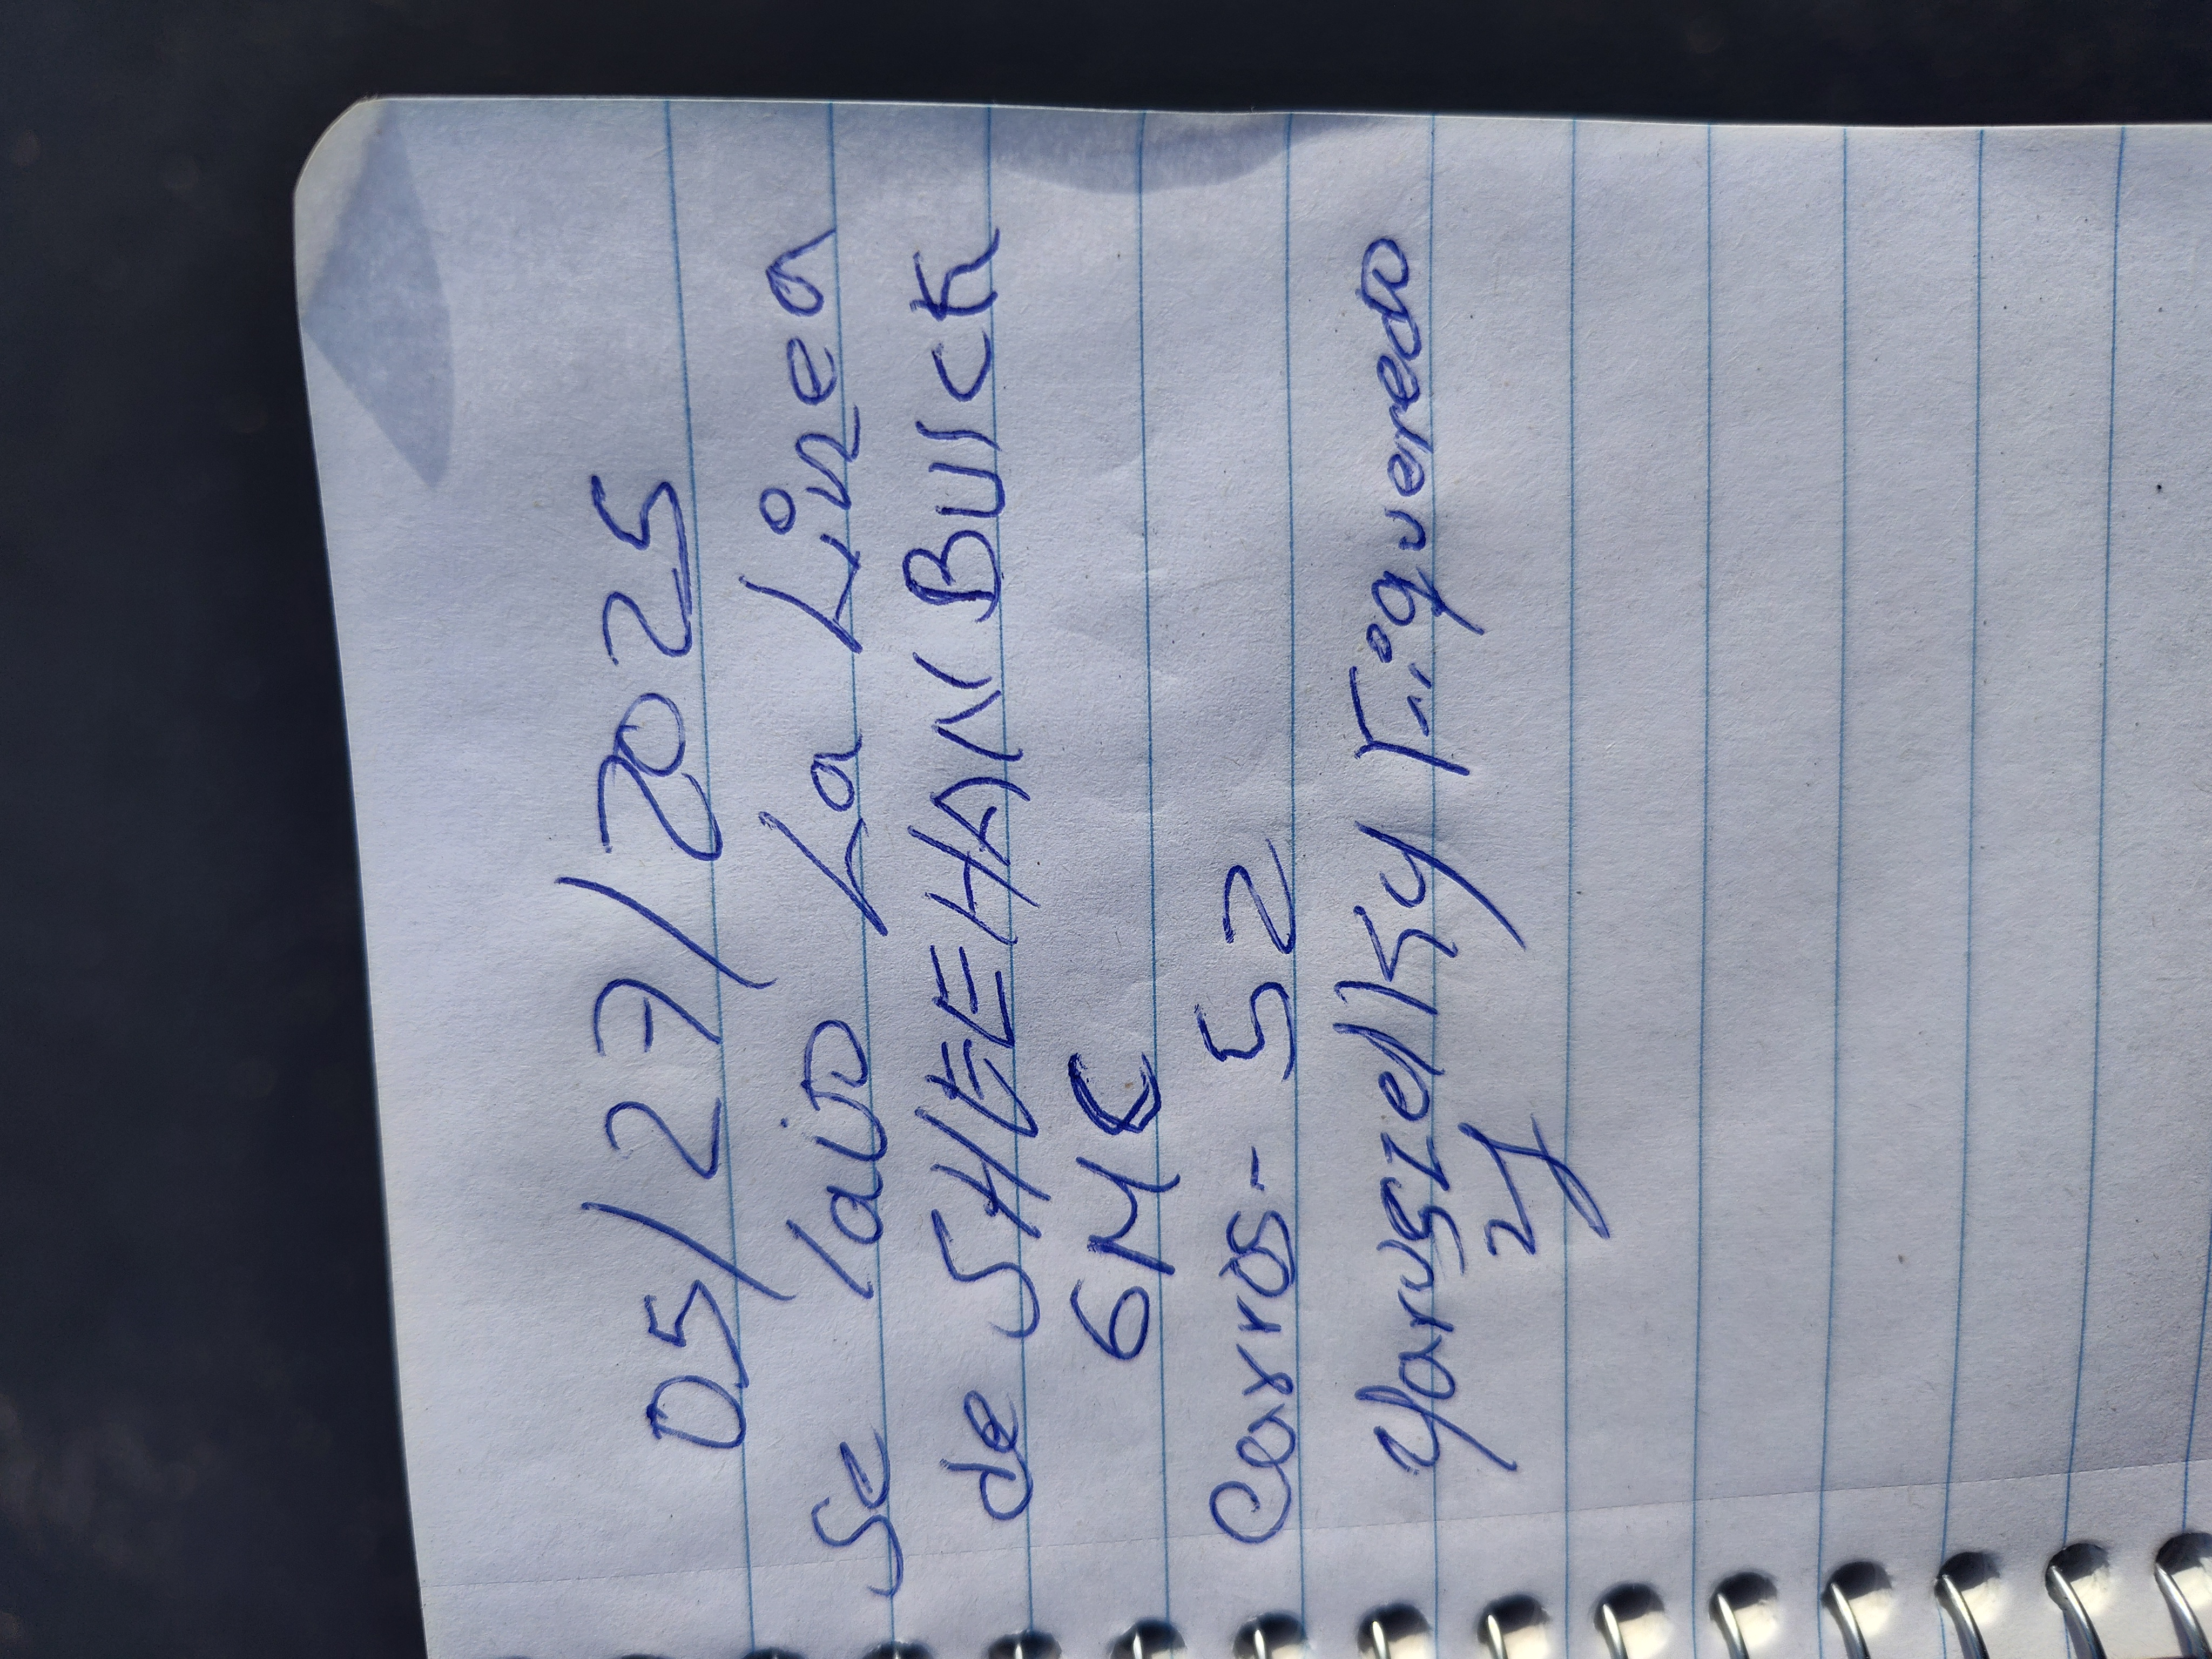 05/27/2025
Se lavo La Linea
de SHEEHAN BUICK
GMC
Carros - 52
Yarusielky Figueredo